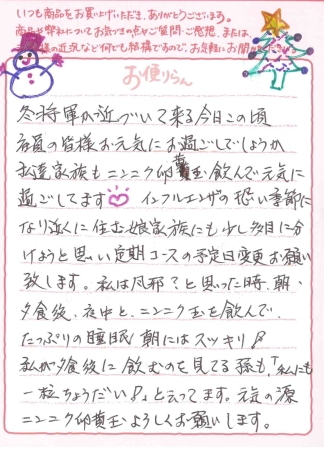 いつも商品をお買上げいただき、ありがとうございます。
商品や弊社についてお気づきの点やご質問・ご感想、または、
の近況など何でも結構ですので、お気軽にお聞かせください。
お便りらん
冬将軍が近づいて来る今日この頃
社員の皆様お元気にお過ごしでしょうか
私達家族もニンニク卵黄玉飲んで元気に
過ごしてます♡ インフルエンザの恐い季節に
なり近くに住む娘家族にも少し多目に分
けようと思い定期コースの予定日変更お願い
致します。私は風邪?と思った時、朝・
夕食後、夜中と、ニンニク玉を飲んで、
たっぷりの睡眠 朝にはスッキリ!
私が夕食後に飲むのを見てる孫も、「私にも
一粒ちょうだい!」と云ってます。元気の源
ニンニク卵黄玉よろしくお願いします。